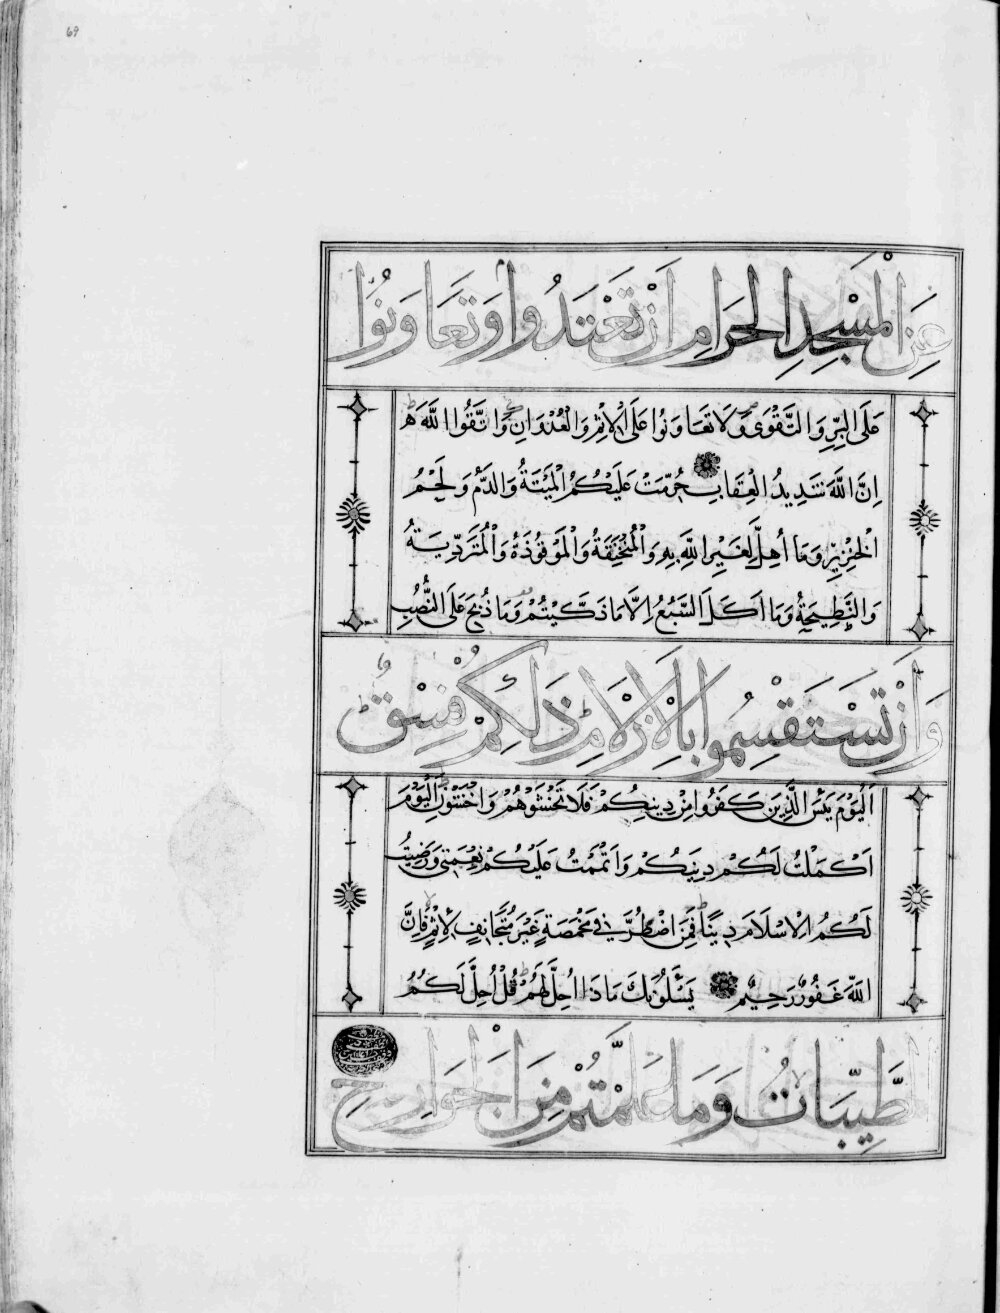 69
عَنِ الْمَسْجِدِ الْحَرَامِ اَنْ تَعْتَدُوا وَتَعَاوَنُوا
عَلَى الْبِرِّ وَالتَّقْوَى وَلَا تَعَاوَنُوا عَلَى الْاِثْمِ وَالْعُدْوَانِ وَاتَّقُوا اللَّهَ
اِنَّ اللَّهَ شَدِيدُ الْعِقَابِ حُرِّمَتْ عَلَيْكُمُ الْمَيْتَةُ وَالدَّمُ وَلَحْمُ
الْخِنْزِيرِ وَمَا اُهِلَّ لِغَيْرِ اللَّهِ بِهِ وَالْمُنْخَنِقَةُ وَالْمَوْقُوذَةُ وَالْمُتَرَدِّيَةُ
وَالنَّطِيحَةُ وَمَا اَكَلَ السَّبُعُ اِلَّا مَا ذَكَّيْتُمْ وَمَا ذُبِحَ عَلَى النُّصُبِ
وَاَنْ تَسْتَقْسِمُوا بِالْاَزْلَامِ ذَلِكُمْ فِسْقٌ
اَلْيَوْمَ يَئِسَ الَّذِينَ كَفَرُوا مِنْ دِينِكُمْ فَلَا تَخْشَوْهُمْ وَاخْشَوْنِ الْيَوْمَ
اَكْمَلْتُ لَكُمْ دِينَكُمْ وَاَتْمَمْتُ عَلَيْكُمْ نِعْمَتِي وَرَضِيتُ
لَكُمُ الْاِسْلَامَ دِينًا فَمَنِ اضْطُرَّ فِي مَخْمَصَةٍ غَيْرَ مُتَجَانِفٍ لِاِثْمٍ فَاِنَّ
اللَّهَ غَفُورٌ رَحِيمٌ يَسْئَلُونَكَ مَاذَا اُحِلَّ لَهُمْ قُلْ اُحِلَّ لَكُمُ
طَّيِّبَاتُ وَمَا عَلَّمْتُمْ مِنَ الْجَوَارِحِ